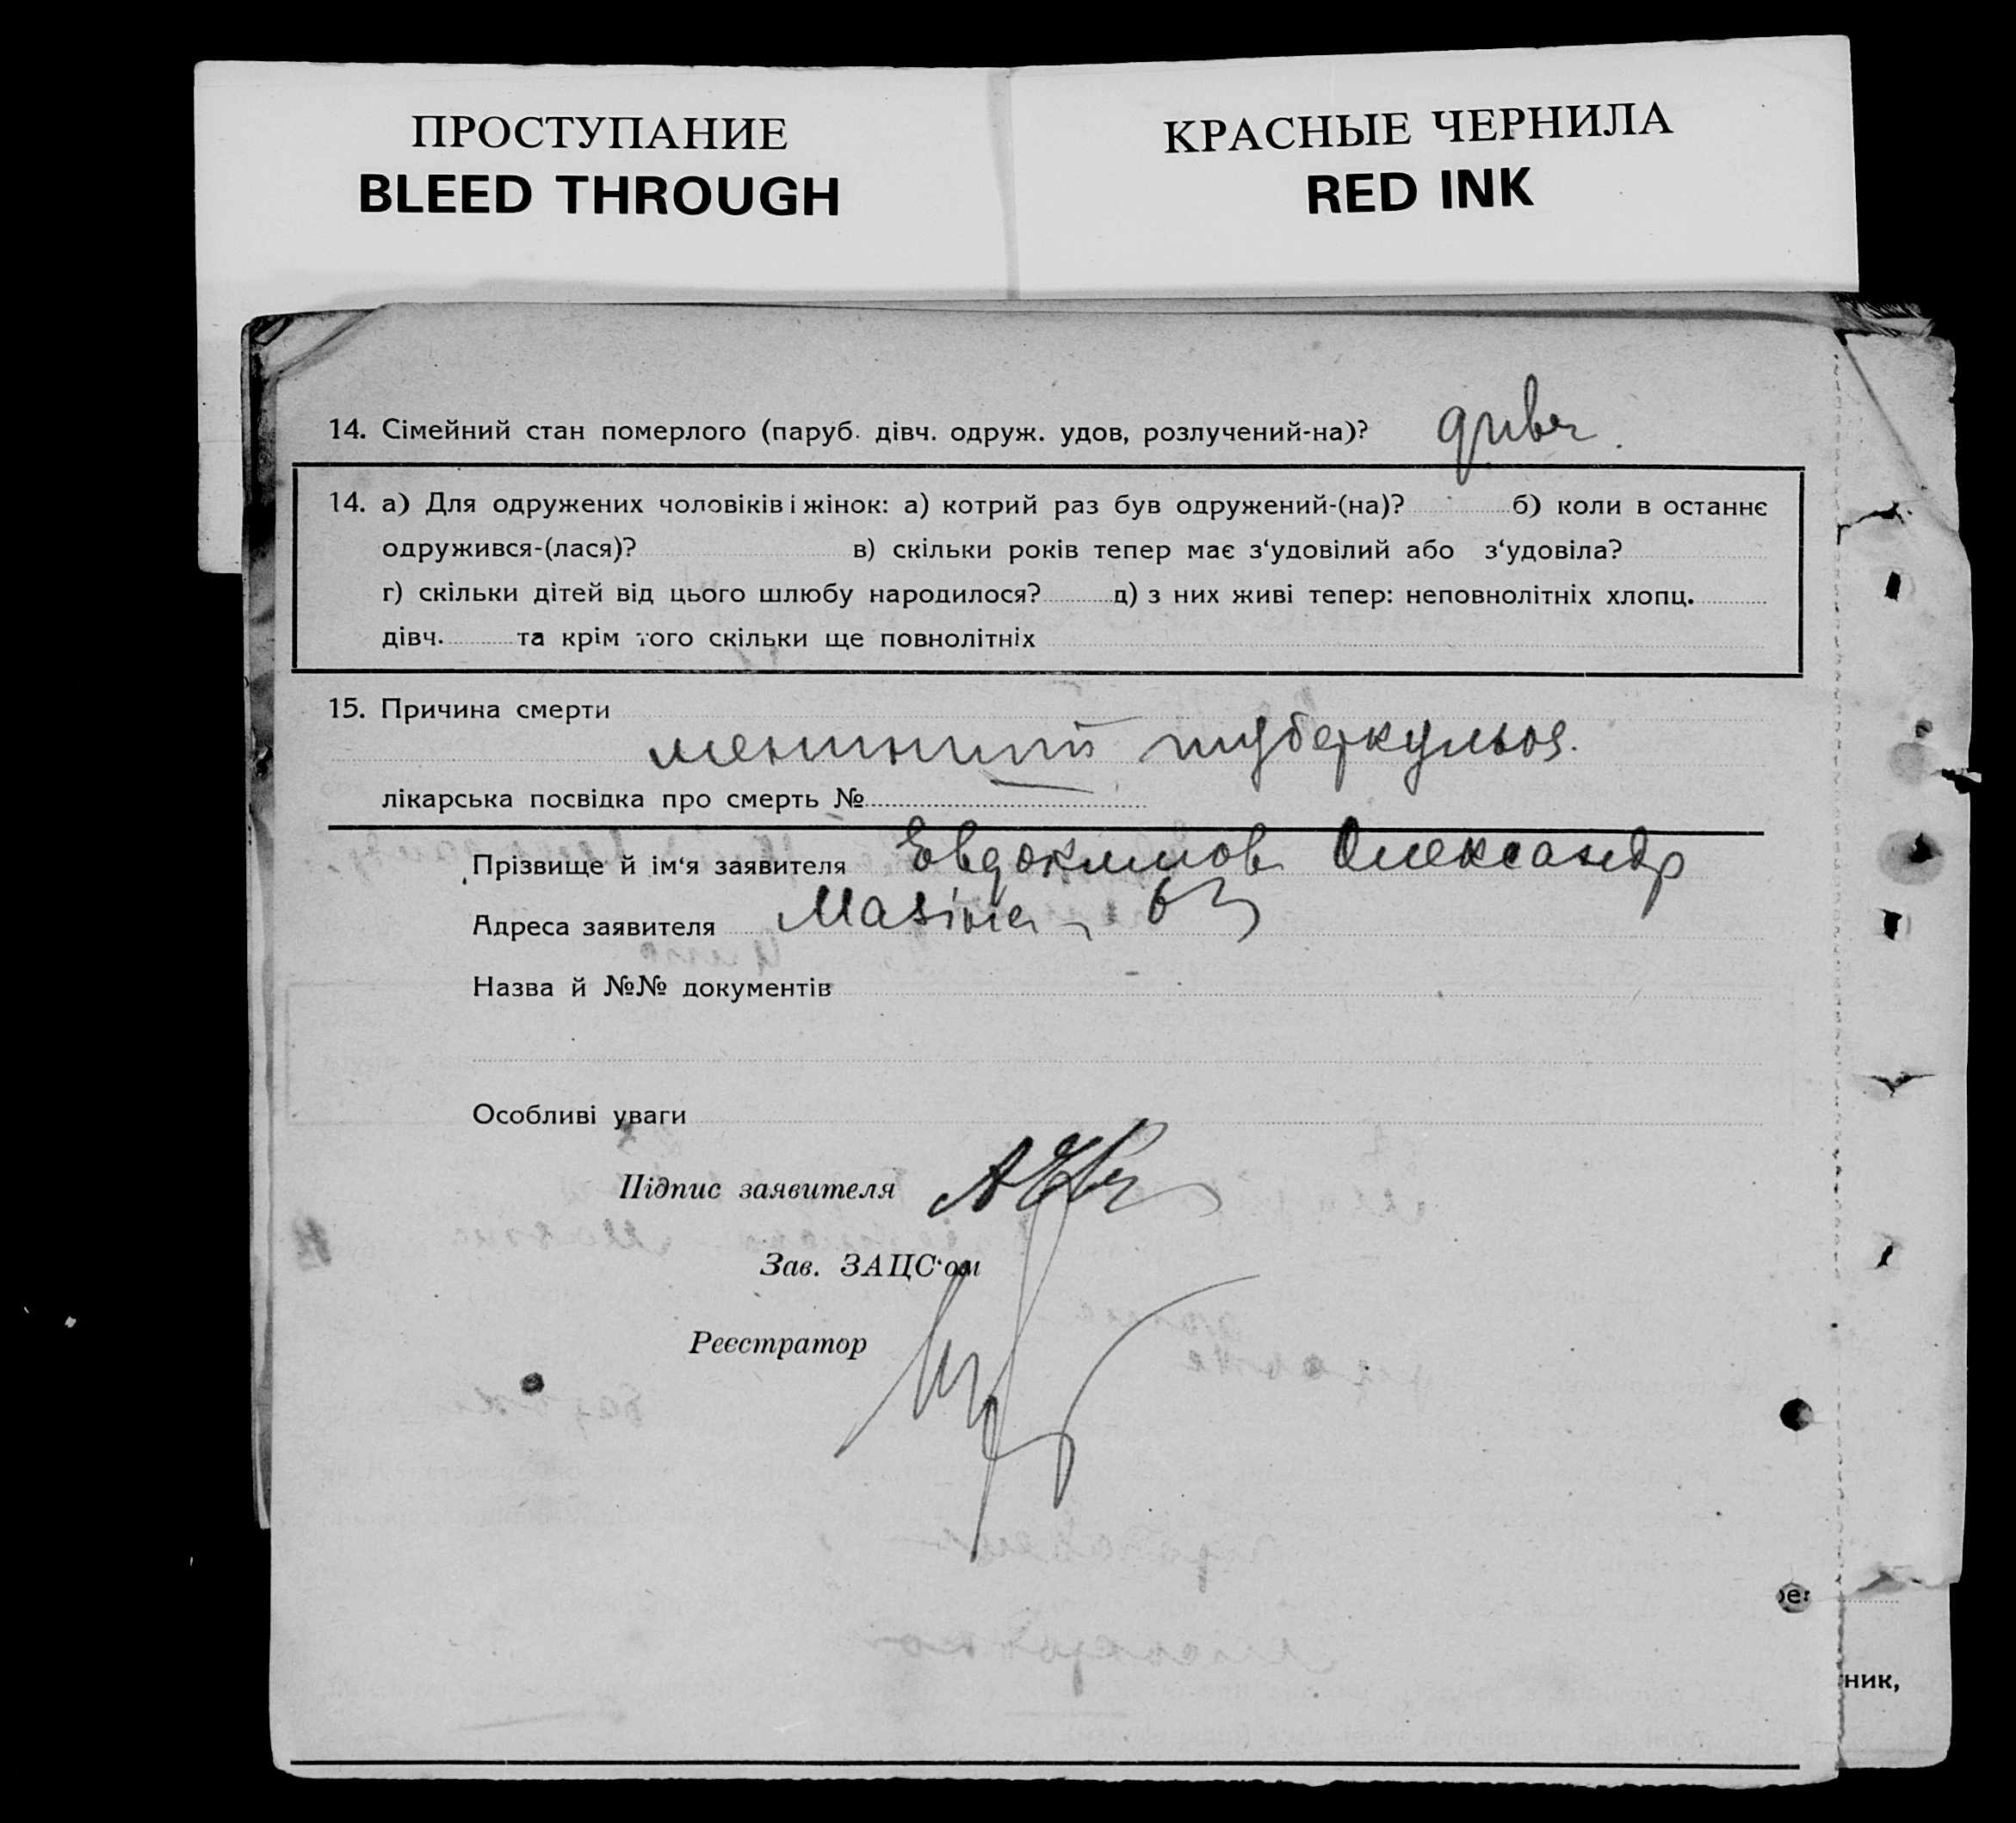 ПРОСТУПАНИЕ
BLEED THROUGH
КРАСНЫЕ ЧЕРНИЛА
RED INK
14. Сімейний стан померлого (паруб. дівч. одруж. удов, розлучений-на)? дивч.
14. а) Для одружених чоловіків і жінок: а) котрий раз був одружений-(на)? б) коли в останнє
одружився-(лася)? в) скільки років тепер має з‘удовілий або з‘удовіла?
г) скільки дітей від цього шлюбу народилося? д) з них живі тепер: неповнолітніх хлопц.
дівч. та крім того скільки ще повнолітніх
15. Причина смерти
туберкульоз.
лікарська посвідка про смерть №
Прізвище й ім‘я заявителя Евдокимов Олександр
Адреса заявителя
Назва й №№ документів
Особливі уваги
Підпис заявителя
Зав. ЗАЦС‘ом
Реєстратор
ник,